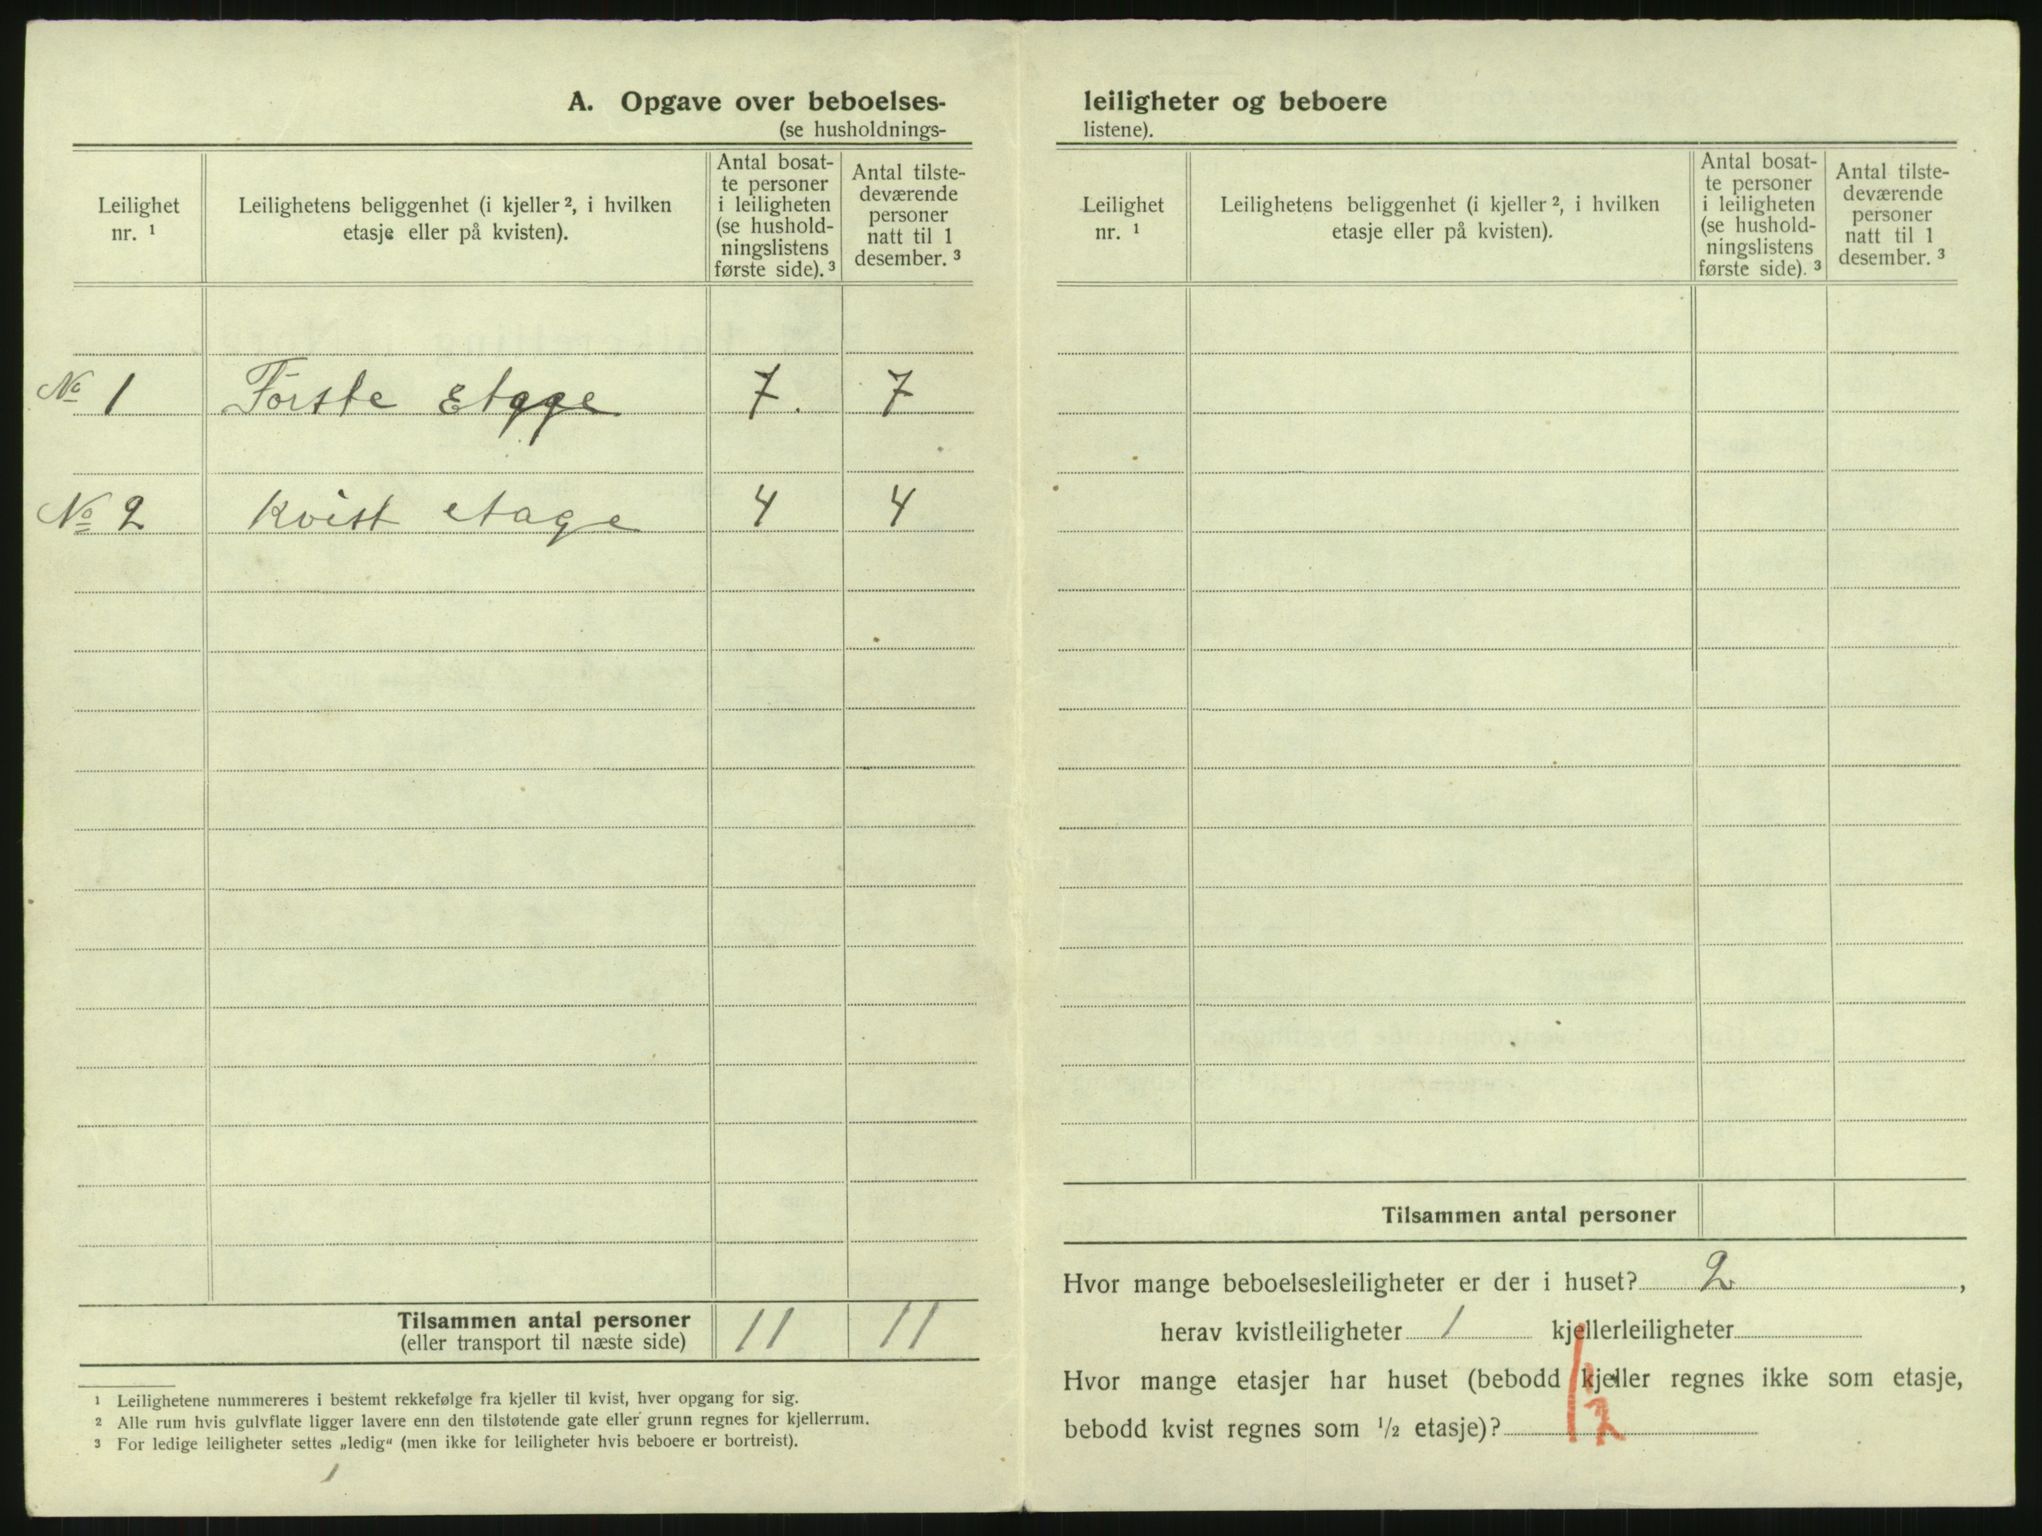 A. Opgave over beboelses-
(se husholdnings-
Leilighet
nr. ¹
Leilighetens beliggenhet (i kjeller ², i hvilken
etasje eller på kvisten).
Antal bosat-
te personer
i leiligheten
(se hushold-
ningslistens
første side). ³
Antal tilste-
deværende
personer
natt til 1
desember. ³
No 1 Förste Etage 7. 7
No 2 Kvist etage 4 4
Tilsammen antal personer
(eller transport til næste side) 11 11
¹ Leilighetene nummereres i bestemt rekkefølge fra kjeller til kvist, hver opgang for sig.
² Alle rum hvis gulvflate ligger lavere enn den tilstøtende gate eller grunn regnes for kjellerrum.
³ For ledige leiligheter settes „ledig“ (men ikke for leiligheter hvis beboere er bortreist).
leiligheter og beboere
listene).
Leilighet
nr. ¹
Leilighetens beliggenhet (i kjeller ², i hvilken
etasje eller på kvisten).
Antal bosat-
te personer
i leiligheten
(se hushold-
ningslistens
første side). ³
Antal tilste-
deværende
personer
natt til 1
desember. ³
Tilsammen antal personer
Hvor mange beboelsesleiligheter er der i huset? 2,
herav kvistleiligheter 1 kjellerleiligheter
Hvor mange etasjer har huset (bebodd kjeller regnes ikke som etasje,
bebodd kvist regnes som ½ etasje)?